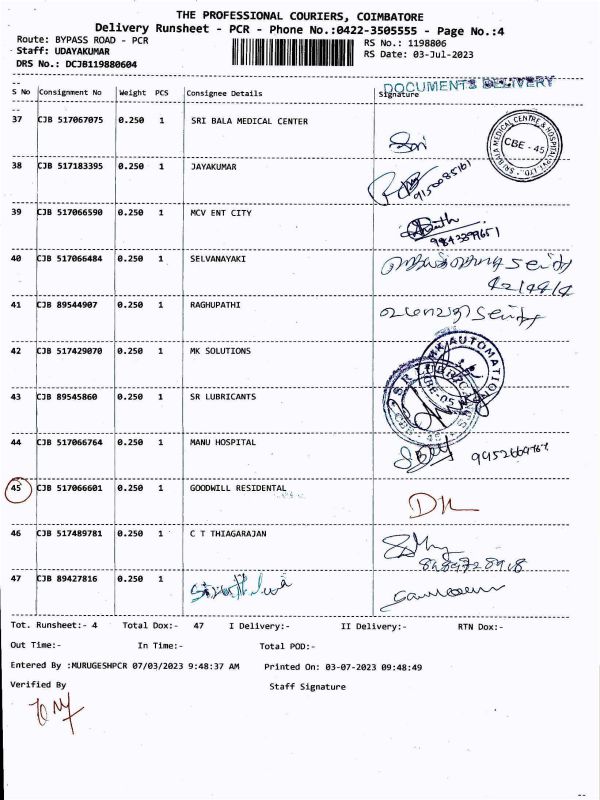 THE PROFESSIONAL COURIERS, COIMBATORE
Delivery Runsheet - PCR - Phone No.:0422-3505555 - Page No.:4
Route: BYPASS ROAD - PCR
RS No.: 1198806
Staff: UDAYAKUMAR
RS Date: 03-Jul-2023
DRS No.: DCJB119880604
DOCUMENTS DELIVERY
S No Consignment No Weight PCS Consignee Details Signature
37 CJB 517067075 0.250 1 SRI BALA MEDICAL CENTER
SRI BALA MEDICAL CENTRE & HOSPITAL PVT LTD.,
CBE - 45
38 CJB 517183395 0.250 1 JAYAKUMAR
9150085161
39 CJB 517066590 0.250 1 MCV ENT CITY
9843399651
40 CJB 517066484 0.250 1 SELVANAYAKI
41 CJB 89544907 0.250 1 RAGHUPATHI
42 CJB 517429070 0.250 1 MK SOLUTIONS
MK AUTOMATION
43 CJB 89545860 0.250 1 SR LUBRICANTS
44 CJB 517066764 0.250 1 MANU HOSPITAL
45 CJB 517066601 0.250 1 GOODWILL RESIDENTAL
46 CJB 517489781 0.250 1 C T THIAGARAJAN
47 CJB 89427816 0.250 1
Tot. Runsheet:- 4 Total Dox:- 47 I Delivery:- II Delivery:- RTN Dox:-
Out Time:- In Time:- Total POD:-
Entered By :MURUGESHPCR 07/03/2023 9:48:37 AM Printed On: 03-07-2023 09:48:49
Verified By Staff Signature